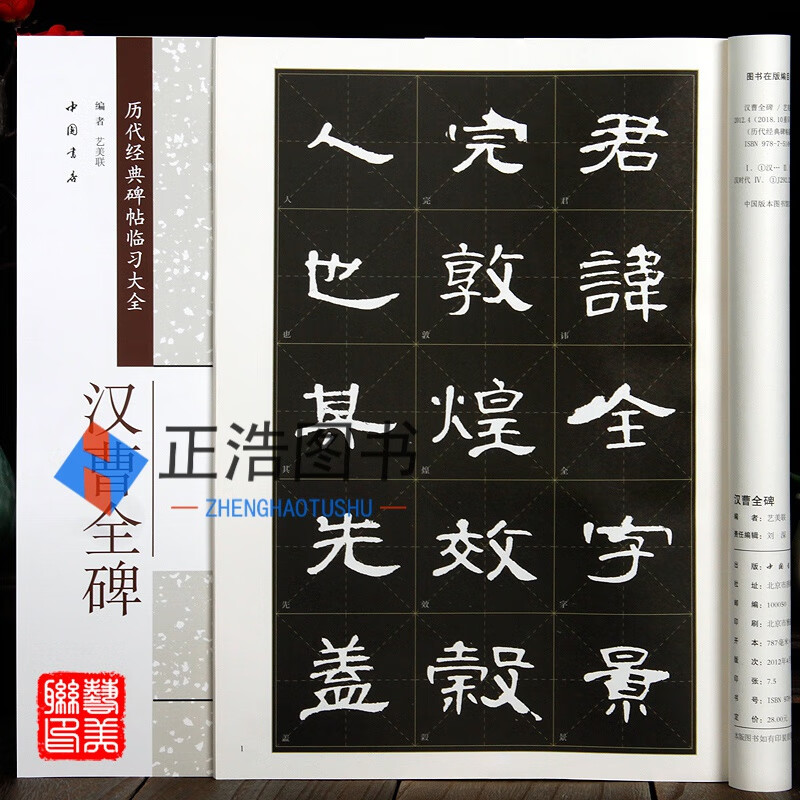 历代经典碑帖临习大全
编者 艺美联
中国书店
汉曹全碑
藝美聯印
正浩图书
ZHENGHAOTUSHU
君諱全字景
完敦煌效穀
人也其先蓋
君
讳
全
字
景
完
敦
煌
效
穀
人
也
其
先
盖
1
图书在版编目
汉曹全碑 / 艺
2012.4 (2018.10重
(历代经典碑帖
ISBN 978-7-5
Ⅰ. ①汉… Ⅱ.
汉时代 Ⅳ. ①J292.2
中国版本图书馆
汉曹全碑
编 者：艺美联
责任编辑：刘
出 版：中国书
社 址：北京市
邮 编：100050
印 刷：北京市
开 本：787毫米
版 次：2012年4
印 张：7.5
书 号：ISBN 978
定 价：28.00元
本版图书如有印装